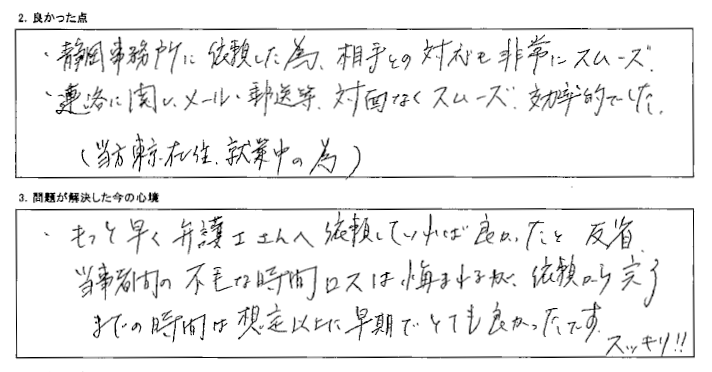 2. 良かった点
・静岡事務所に依頼した為、相手との対応も非常にスムーズ。
・連絡に関し、メール・郵送等、対面なくスムーズ、効率的でした。
(当方東京在住、就業中の為)
3. 問題が解決した今の心境
・もっと早く弁護士さんへ依頼していれば良かったと反省
当事者間の不毛な時間ロスは悔まれるが、依頼から完了
までの時間は想定以上に早期でとても良かったです。
スッキリ!!